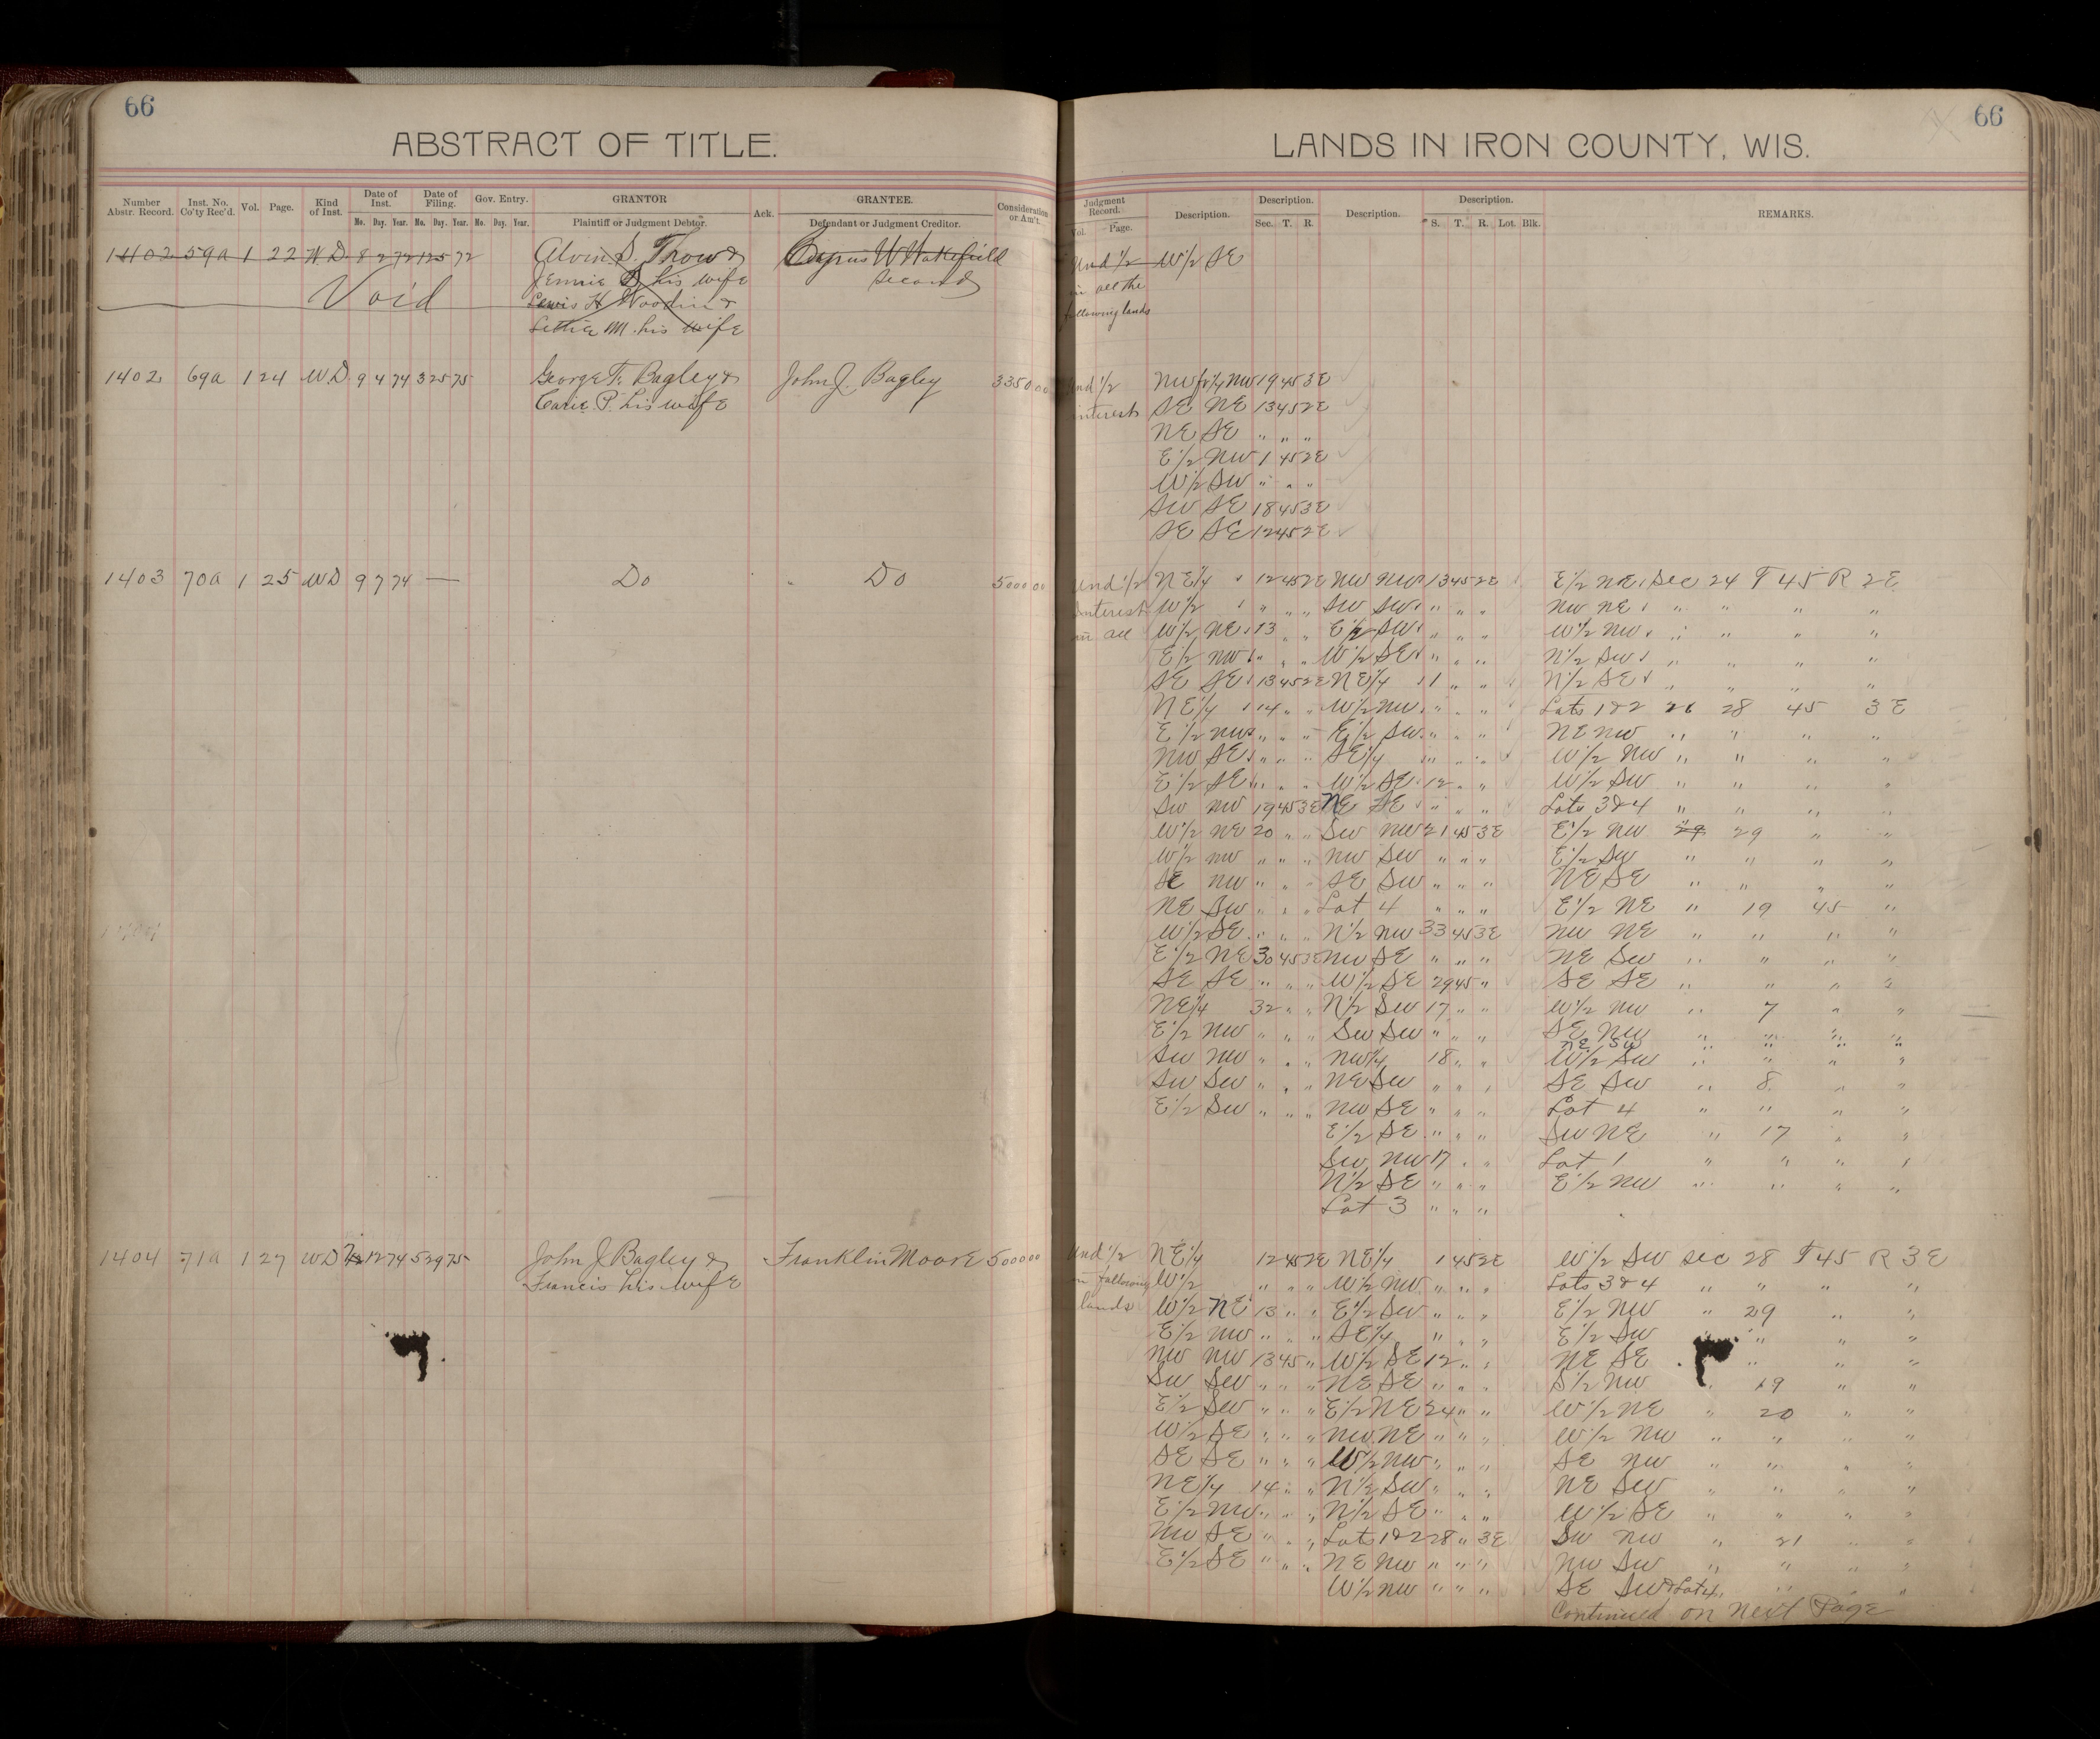 66
ABSTRACT OF TITLE.
Number Abstr. Record. Inst. No. Co'ty Rec'd. Vol. Page. Kind of Inst. Date of Inst. Mo. Day. Year. Date of Filing. Mo. Day. Year. Gov. Entry. Mo. Day. Year. GRANTOR Plaintiff or Judgment Debtor. Ack. GRANTEE. Defendant or Judgment Creditor. Consideration or Am't.
1402 59a 1 22 W.D. 8 2 72 12 5 72 Alvin S. Thow & W Wakefield
Jennie his wife Second
Void Lewis H Woodin &
Lettie M. his wife
1402 69a 1 24 W.D. 9 4 74 3 25 75 George F. Bagley & John J. Bagley 3350 00
Carie. P. his wife
1403 70a 1 25 WD 9 7 74 — Do Do 5000 00
1404 71a 1 27 WD 12 74 5 29 75 John J Bagley & Franklin Moore 5000 00
Francis his wife
66
LANDS IN IRON COUNTY, WIS.
Judgment Record. Vol. Page. Description. Description. Sec. T. R. Description. Description. S. T. R. Lot. Blk. REMARKS.
Und 1/2 W 1/2 SE
in all the
following lands
Und 1/2 NW fr 1/4 NW 19 45 3E
interest SE NE 13 45 2E
NE SE " " "
E 1/2 NW 1 45 2E
W 1/2 SW " " "
SW SE 18 45 3E
SE SE 12 45 2E
Und 1/2 NE 1/4 12 45 2E NW NW 13 45 2E E 1/2 NE Sec 24 T 45 R 2E
Interest W 1/2 " " " SW SW " " " NW NE " " " "
in all W 1/2 NE 13 " " E 1/2 SW " " " W 1/2 NW " " " "
E 1/2 NW " " " W 1/2 SE " " " N 1/2 SW " " " "
SE SE 13 45 2E NE 1/4 1 " " N 1/2 SE " " " "
NE 1/4 14 " " W 1/2 NW " " " Lots 1 & 2 28 45 3E
E 1/2 NW " " " E 1/2 SW " " " NE NW " " " "
NW SE " " " SE 1/4 " " " W 1/2 NW " " " "
E 1/2 SE " " " W 1/2 SE 12 " " W 1/2 SW " " " "
SW NW 19 45 3E NE SE " " " Lots 3 & 4 " " " "
W 1/2 NE 20 " " SW NW 21 45 3E E 1/2 NW 29 29 " "
W 1/2 NW " " " NW SW " " " E 1/2 SW " " " "
SE NW " " " SE SW " " " NE SE " " " "
NE SW " " " Lot 4 " " " E 1/2 NE " 19 45 "
W 1/2 SE " " " N 1/2 NW 33 45 3E NW NE " " " "
E 1/2 NE 30 45 3E NW SE " " " NE SW " " " "
SE SE " " " W 1/2 SE 29 45 " SE SE " " " "
NE 1/4 32 " " N 1/2 SW 17 " " W 1/2 NW " 7 " "
E 1/2 NW " " " SW SW " " " SE NW " " " "
NE SW " " " "
SW NW " " " NW 1/4 18 " " W 1/2 SW " " " "
SW SW " " " NE SW " " " SE SW " 8 " "
E 1/2 SW " " " NW SE " " " Lot 4 " " " "
E 1/2 SE " " " SW NE " 17 " "
SW NW 17 " " Lot 1 " " " "
N 1/2 SE " " " E 1/2 NW " " " "
Lot 3 " " "
Und 1/2 NE 1/4 12 45 2E NE 1/4 1 45 2E W 1/2 SW Sec 28 T 45 R 3E
in following W 1/2 " " " W 1/2 NW " " " Lots 3 & 4 " " " "
lands W 1/2 NE 13 " " E 1/2 SW " " " E 1/2 NW " 29 " "
E 1/2 NW " " " SE 1/4 " " " E 1/2 SW " " " "
NW NW 13 45 " W 1/2 SE 12 " " NE SE " " "
SW SW " " " NE SE " " " S 1/2 NW " 19 " "
E 1/2 SW " " " E 1/2 NE 24 " " W 1/2 NE " 20 " "
W 1/2 SE " " " NW NE " " " W 1/2 NW " " " "
SE SE " " " W 1/2 NW " " " SE NW " " " "
NE 1/4 14 " " N 1/2 SW " " " NE SW " " " "
E 1/2 NW " " " N 1/2 SE " " " W 1/2 SE " " " "
NW SE " " " Lots 1 & 2 28 " 3E SW NW " 21 " "
E 1/2 SE " " " NE NW " " " NW SW " " " "
W 1/2 NW " " " SE SW & Lot 4 " " "
Continued on Next Page